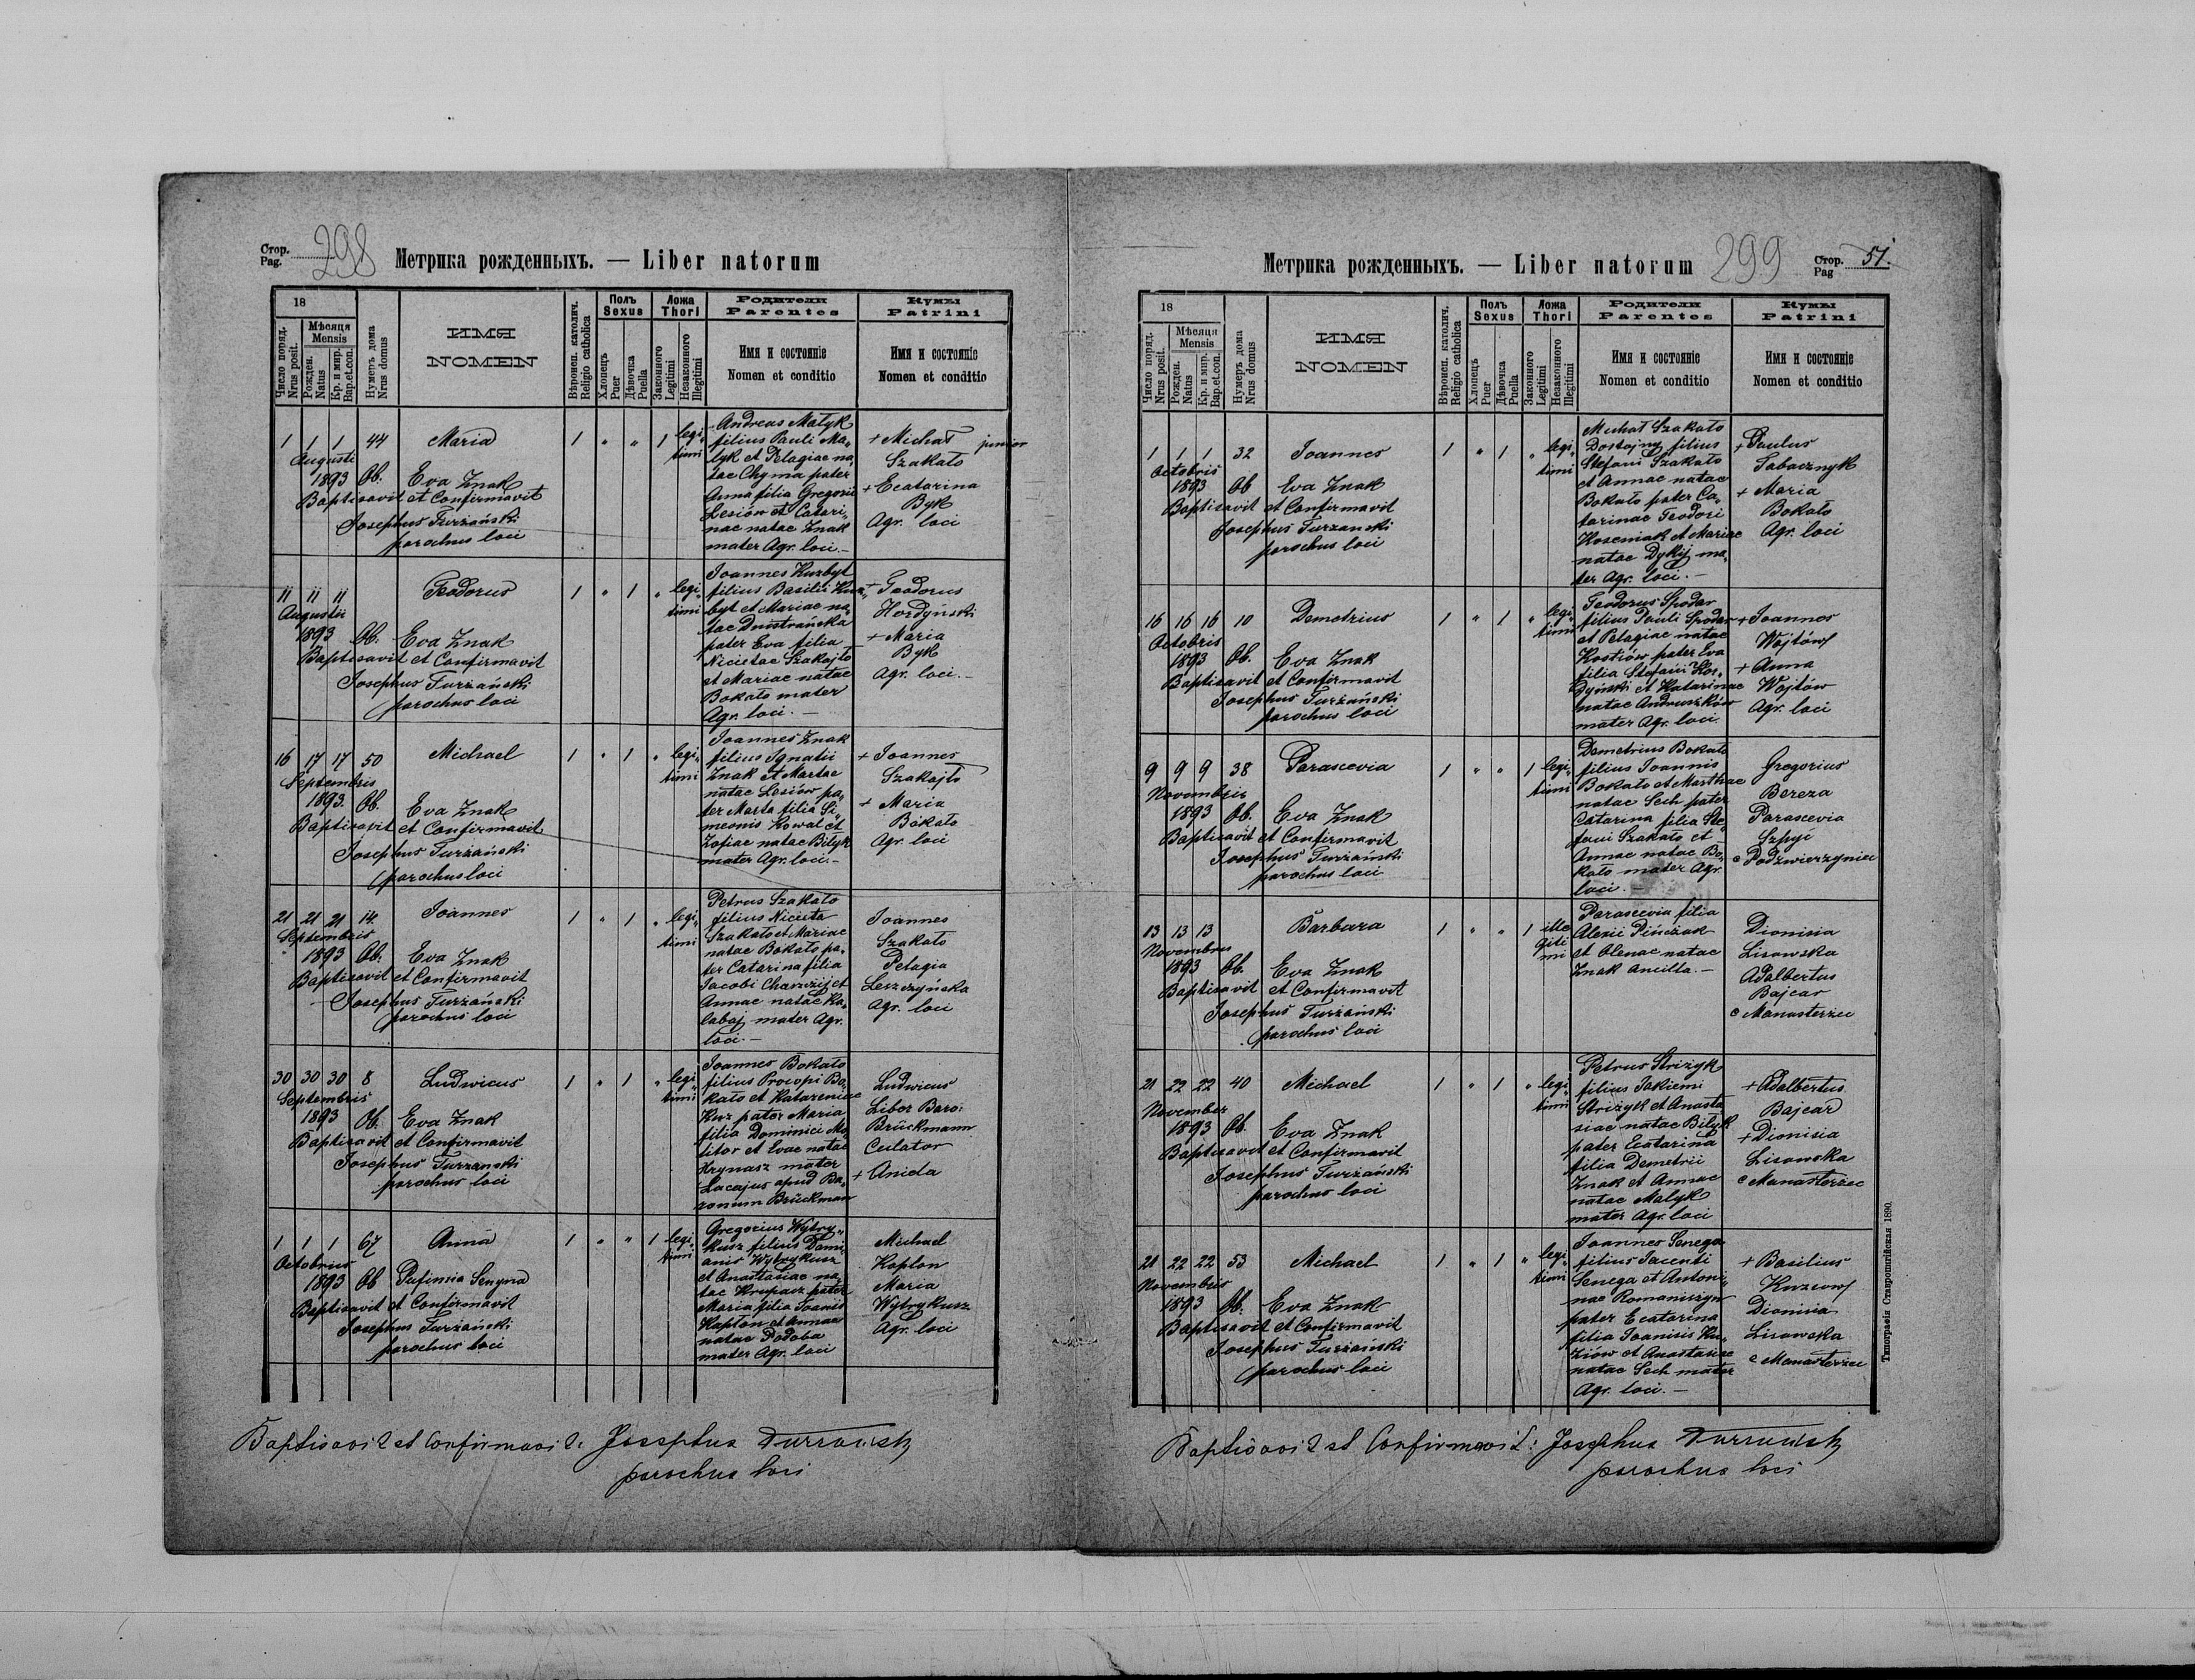 Стор. Pag. 298 Метрика рожденныхъ. — Liber natorum
18
Число поряд. Nrus posit.
Мѣсяця Mensis
Рожден. Natus
Кр. и мир. Bap.et.con.
Нумеръ дома Nrus domus
ИМЯ
NOMEN
Вѣроисп. католич. Religio catholica
Полъ Sexus
Хлопецъ Puer
Дѣвочка Puella
Ложа Thori
Законного Legitimi
Незаконного Illegitimi
Родители Parentes
Имя и состояніе
Nomen et conditio
Кумы Patrini
Имя и состояніе
Nomen et conditio
1 1 1 44 Maria 1 " " 1 legi„ timi
Augusti
1893 Ob. Eva Znak
Baptisavit et Confirmavit
Josephus Turzański
parochus loci
Andreas Malyk
filius Pauli Ma„
lyk et Pelagiae na„
tae Chyma pater
Anna filia Gregorii
Lesiów et Catari„
nae natae Znak
mater Agr. loci.—
+ Michał junior
Szakało
+ Ecatarina
Byk
Agr. loci
11 11 11 Teodorus 1 " 1 " legi„ timi
Augusti
1893 Ob. Eva Znak
Baptisavit et Confirmavit
Josephus Turzański
parochus loci
Joannes Kurbyt
filius Basilii Kur„
byt et Mariae na„
tae Dnistrańska
pater Eva filia
Nicietae Szakajło
et Mariae natae
Bokało mater
Agr. loci.—
+ Teodorus
Hordyński
+ Maria
Byk
Agr. loci.—
16 17 17 50 Michael 1 " 1 " legi„ timi
Septembris
1893. Ob. Eva Znak
Baptisavit et Confirmavit
Josephus Turzański
parochus loci
Joannes Znak
filius Ignatii
Znak et Martae
natae Lesiów pa„
ter Marta filia Si„
meonis Kowal et
Zofiae natae Bilyk
mater Agr. loci.—
+ Joannes
Szakajło
+ Maria
Bokało
Agr. loci
21 21 21 14 Joannes 1 " 1 " legi„ timi
Septembris
1893 Ob. Eva Znak
Baptisavit et Confirmavit
Josephus Turzański
parochus loci
Petrus Szakało
filius Nicieta
Szakało et Mariae
natae Bokało pa„
ter Catarina filia
Jacobi Charczij et
Annae natae Ka„
labaj mater Agr.
loci.—
Joannes
Szakało
Pelagia
Leszczyńska
Agr. loci
30 30 30 8 Ludwicus 1 " 1 " legi„ timi
Septembris
1893 Ob. Eva Znak
Baptisavit et Confirmavit
Josephus Turzanski
parochus loci
Joannes Bokało
filius Procopi Bo„
kało et Katarenicae
Kuz pater Maria
filia Dominici Mo„
litor et Evae natae
Krynasz mater
Lacajus apud Ba„
ronum Brückman
Ludwicus
Libor Baro:
Brückmann
Culator
+ Anida
1 1 1 67 Anna 1 " " 1 legi„ timi
Octobris
1893 Ob Pufimia Senyna
Baptisavit et Confirmavit
Josephus Turzański
parochus loci
Gregorius Wytry„
kusz filius Demi„
anis Wytrykusz
et Anastasiae na„
tae Krupacz pater
Maria filia Joanis
Kaplon et Annae
natae Podoba
mater Agr. loci
Michael
Kaplon
Maria
Wytrykusz
Agr. loci
Baptisavit et Confirmavit: Josephus Turzański
parochus loci
Метрика рожденныхъ. — Liber natorum 299 Стор. Pag 51.
18
Число поряд. Nrus posit.
Мѣсяця Mensis
Рожден. Natus
Кр. и мир. Bap.et.con.
Нумеръ дома Nrus domus
ИМЯ
NOMEN
Вѣроисп. католич. Religio catholica
Полъ Sexus
Хлопецъ Puer
Дѣвочка Puella
Ложа Thori
Законного Legitimi
Незаконного Illegitimi
Родители Parentes
Имя и состояніе
Nomen et conditio
Кумы Patrini
Имя и состояніе
Nomen et conditio
1 1 1 32 Joannes 1 " 1 " legi„ timi
Octobris
1893 Ob Eva Znak
Baptisavit et Confirmavit
Josephus Turzanski
parochus loci
Michał Szakało
Dostojny filius
Stefani Szakało
et Annae natae
Bokało pater Ca„
tarinae Teodori
Koseniak et Mariae
natae Dykij ma„
ter Agr. loci.—
+ Paulus
Tabacznyk
+ Maria
Bokało
Agr. loci
16 16 16 10 Demetrius 1 " 1 " legi„ timi
Octobris
1893 Ob. Eva Znak
Baptisavit et Confirmavit
Josephus Turzański
parochus loci
Teodorus Spodar
filius Pauli Spodar
et Pelagiae natae
Kostiów pater Eva
filia Stefani Hor„
dyński et Katarinae
natae Andruszków
mater Agr. loci.
+ Joannes
Wojtów
+ Anna
Wojtów
Agr. loci
9 9 9 38 Parascevia 1 " " 1 legi„ timi
Novembris
1893 Ob. Eva Znak
Baptisavit et Confirmavit
Josephus Turzański
parochus loci
Demetrius Bokało
filius Joannis
Bokało et Marthae
natae Sech pater
Catarina filia Ste„
fani Szakało et
Annae natae Bo„
kało mater Agr.
loci.—
Gregorius
Bereza
Parascevia
Szpyi
e Podzwierzyniec
13 13 13 Barbara 1 " " 1 ille giti mi
Novembris
1893 Ob. Eva Znak
Baptisavit et Confirmavit
Josephus Turzański
parochus loci
Parascevia filia
Alexii Pińczak
et Olenae natae
Znak ancilla.—
Dionisia
Lisowska
Adalbertus
Bajcar
e Manasterzec
21 22 22 40 Michael 1 " 1 " legi„ timi
November
1893 Ob. Eva Znak
Baptisavit et Confirmavit
Josephus Turzański
parochus loci
Petrus Strizyk
filius Jakiemi
Strizyk et Anasta
siae natae Bilyk
pater Ecatarina
filia Demetrii
Znak et Annae
natae Malyk
mater Agr. loci
+ Adalbertus
Bajcar
+ Dionisia
Lisowska
e Manasterzec
21 22 22 53 Michael 1 " 1 " legi„ timi
Novembris
1893 Ob. Eva Znak
Baptisavit et Confirmavit
Josephus Turzański
parochus loci
Joannes Senega
filius Jacenti
Senega et Antoni„
nae Romaniszyn
pater Ecatarina
filia Joanisis Ku„
ziów et Anastasiae
natae Sech mater
Agr. loci.—
+ Basilius
Kuziow
Dionisia
Lisowska
e Manasterzec
Baptisavit et Confirmavit: Josephus Turzański
parochus loci
Типографія Ставропигійская 1890.